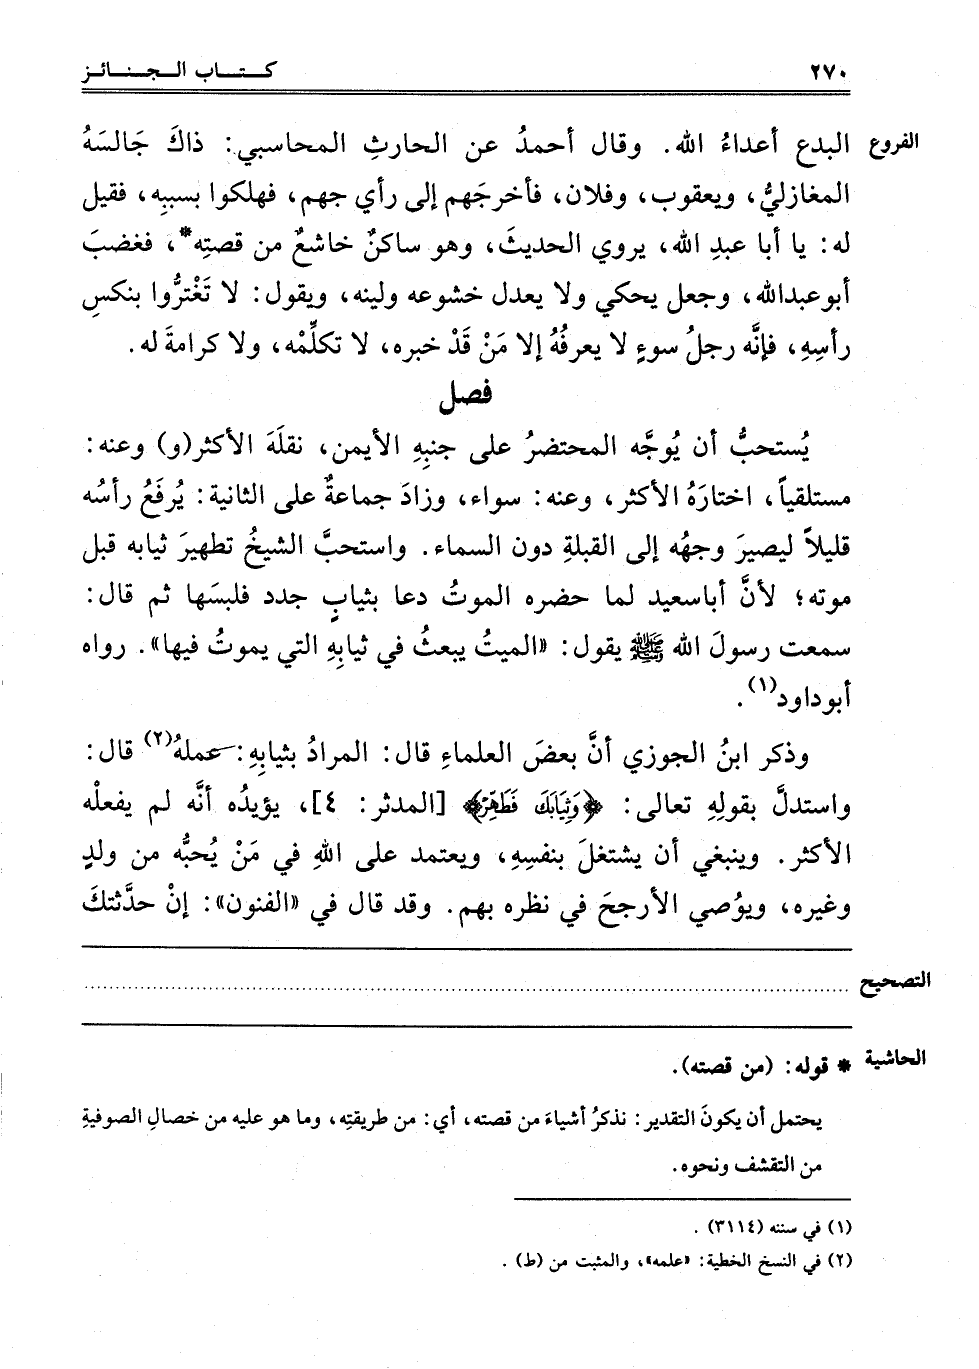 ٢٧٠ كـتـاب الـجـنـائـز
الفروع البدع أعداءُ الله. وقال أحمدُ عن الحارثِ المحاسبي: ذاكَ جَالسَهُ
المغازليُّ، ويعقوب، وفلان، فأخرجَهم إلى رأي جهم، فهلكوا بسببِه، فقيل
له: يا أبا عبدِ الله، يروي الحديثَ، وهو ساكنٌ خاشعٌ من قصتِه*، فغضبَ
أبوعبدالله، وجعل يحكي ولا يعدل خشوعه ولينه، ويقول: لا تَغْترُّوا بنكسِ
رأسِهِ، فإنَّه رجلُ سوءٍ لا يعرفُهُ إلا مَنْ قَدْ خبره، لا تكلِّمْه، ولا كرامةَ له.
فصل
يُستحبُّ أن يُوجَّه المحتضرُ على جنبِهِ الأيمن، نقلَهَ الأكثر(و) وعنه:
مستلقياً، اختارَهُ الأكثر، وعنه: سواء، وزادَ جماعةٌ على الثانية: يُرفَعُ رأسُه
قليلاً ليصيرَ وجهُه إلى القبلةِ دون السماء. واستحبَّ الشيخُ تطهيرَ ثيابه قبل
موته؛ لأنَّ أباسعيد لما حضره الموتُ دعا بثيابٍ جدد فلبسَها ثم قال:
سمعت رسولَ الله ﷺ يقول: «الميتُ يبعثُ في ثيابِهِ التي يموتُ فيها». رواه
أبوداود(١).
وذكر ابنُ الجوزي أنَّ بعضَ العلماءِ قال: المرادُ بثيابِهِ: عملهُ(٢) قال:
واستدلَّ بقولِهِ تعالى: ﴿وَثِيَابَكَ فَطَهِّرْ﴾ [المدثر: ٤]، يؤيدُه أنَّه لم يفعلْه
الأكثر. وينبغي أن يشتغلَ بنفسِهِ، ويعتمد على اللهِ في مَنْ يُحبُّه من ولدٍ
وغيره، ويوُصي الأرجحَ في نظره بهم. وقد قال في «الفنون»: إنْ حدَّثتكَ
التصحيح ........................................................................
الحاشية * قوله: (من قصته).
يحتمل أن يكونَ التقدير: نذكرُ أشياءَ من قصته، أي: من طريقتِه، وما هو عليه من خصالِ الصوفيةِ
من التقشف ونحوه.
(١) في سننه (٣١١٤).
(٢) في النسخ الخطية: «علمه»، والمثبت من (ط).